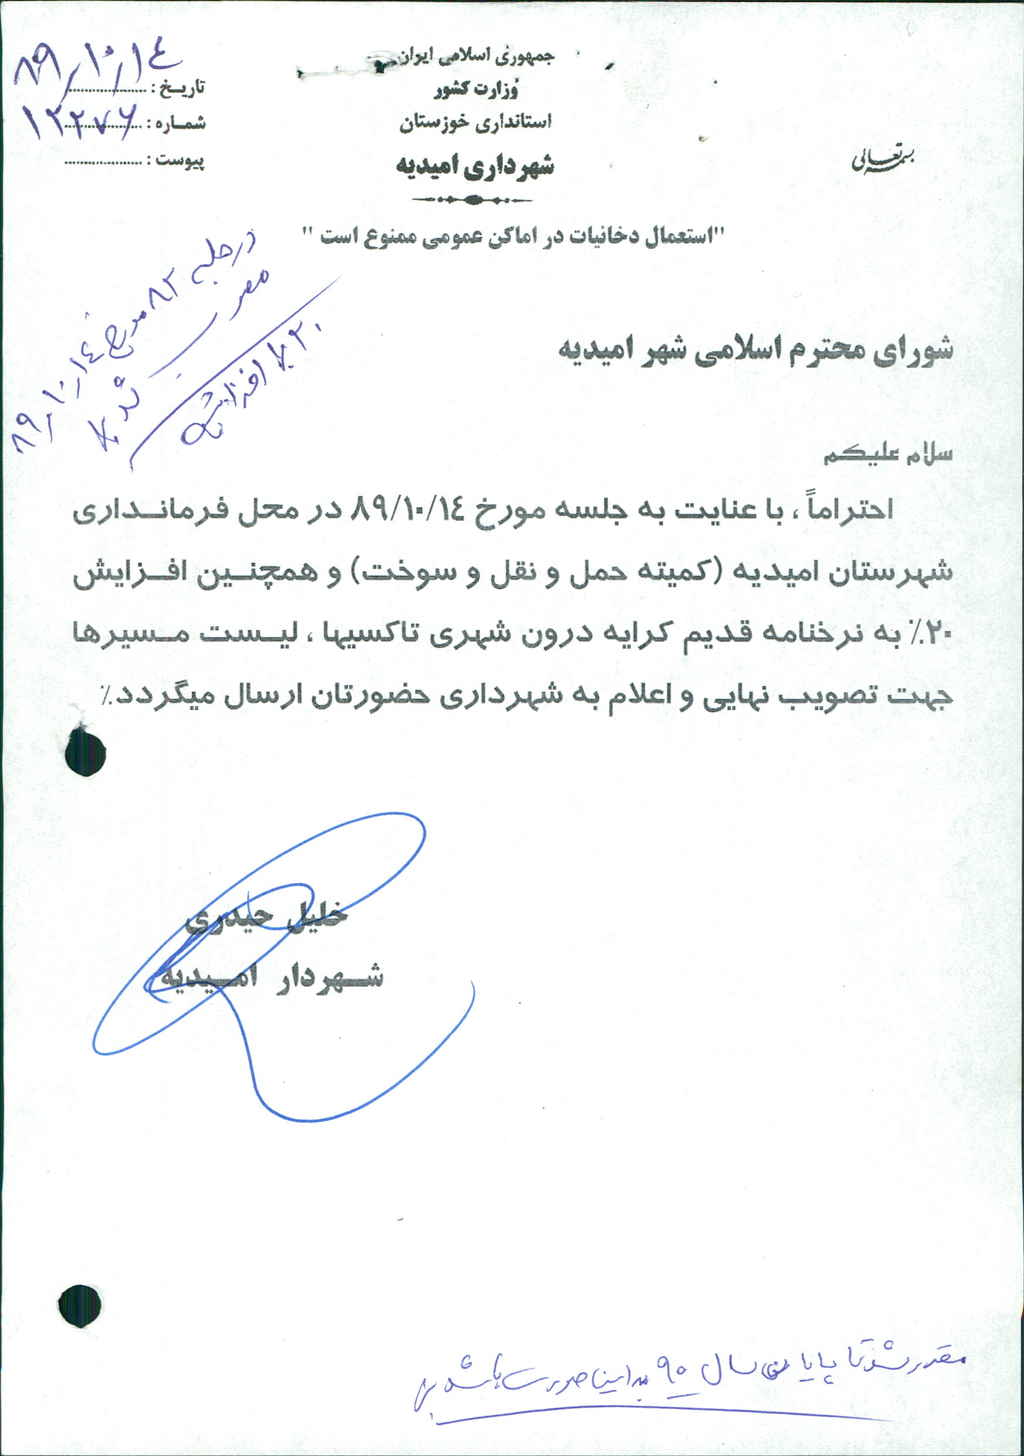 بسمه تعالی
جمهوری اسلامی ایران
وزارت کشور
استانداری خوزستان
شهرداری امیدیه
تاریخ : ۸۹/۱۰/۱۴
شماره : ۱۲۲۷۶
پیوست : ....................
"استعمال دخانیات در اماکن عمومی ممنوع است "
در جلسه ۸۲ مورخ ۸۹/۱۰/۱۴
مصوب شد با
۲۰٪ افزایش
شورای محترم اسلامی شهر امیدیه
سلام علیکم
احتراماً ، با عنایت به جلسه مورخ ۸۹/۱۰/۱۴ در محل فرمانداری
شهرستان امیدیه (کمیته حمل و نقل و سوخت) و همچنین افزایش
۲۰٪ به نرخنامه قدیم کرایه درون شهری تاکسیها ، لیست مسیرها
جهت تصویب نهایی و اعلام به شهرداری حضورتان ارسال میگردد٪
خلیل حیدری
شهردار امیدیه
مقرر شد تا پایان سال ۹۰ به این صورت باشد